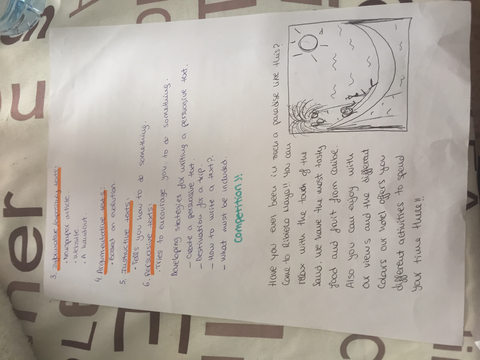 3. Informative (expository) texts:
• Newspaper article
• Website
• A handout
4. Argumentative texts:
• Based on
5. Instructive texts:
• Tells you how to do something
6. Persuasive texts:
• Tries to encourage you to do something.
Developing strategies for writing a persuasive text.
- Create a persuasive text
- Destination for a trip
- How to write a text?
- What must be included.
Competition!!
Have you ever been in such a paradise like this?
Come to Riviera Maya!! You can
relax with the touch of the
sand. We have the most tasty
food and fruit from Caribe
Also you can enjoy with
our views and the different
Colours. Our hotel offers you
different activities to spend
your time there!!